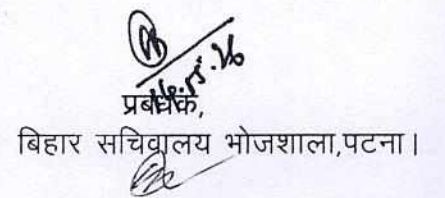 प्रबंधक,
बिहार सचिवालय भोजशाला,पटना।